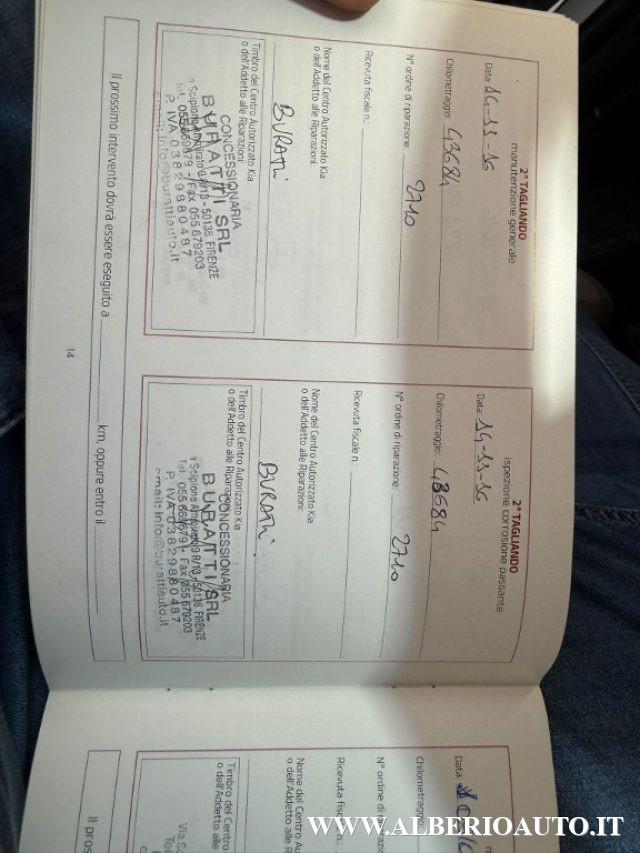 2° TAGLIANDO
manutenzione generale
Data: 14-11-16
Chilometraggio: 43684
N° ordine di riparazione: 2710
Ricevuta fiscale n.:
Nome del Centro Autorizzato Kia
o dell'Addetto alle Riparazioni:
BURATTI
Timbro del Centro Autorizzato Kia
o dell'Addetto alle Riparazioni:
CONCESSIONARIA
BURATTI SRL
50136 FIRENZE
Fax 055 679203
P. IVA 03829880487
email: info@burattiauto.it
2° TAGLIANDO
ispezione corrosione passante
Data: 14-11-16
Chilometraggio: 43684
N° ordine di riparazione: 2710
Ricevuta fiscale n.:
Nome del Centro Autorizzato Kia
o dell'Addetto alle Riparazioni:
BURATTI
Timbro del Centro Autorizzato Kia
o dell'Addetto alle Riparazioni:
CONCESSIONARIA
BURATTI SRL
50136 FIRENZE
Fax 055 679203
P. IVA 03829880487
email: info@burattiauto.it
Il prossimo intervento dovrà essere eseguito a km, oppure entro il
14
Data:
Chilometraggio
N° ordine di
Ricevuta fisc
Nome del Cen
o dell'Addetto
Timbro del Cen
o dell'Addetto
Via
Il pros
WWW.ALBERIOAUTO.IT